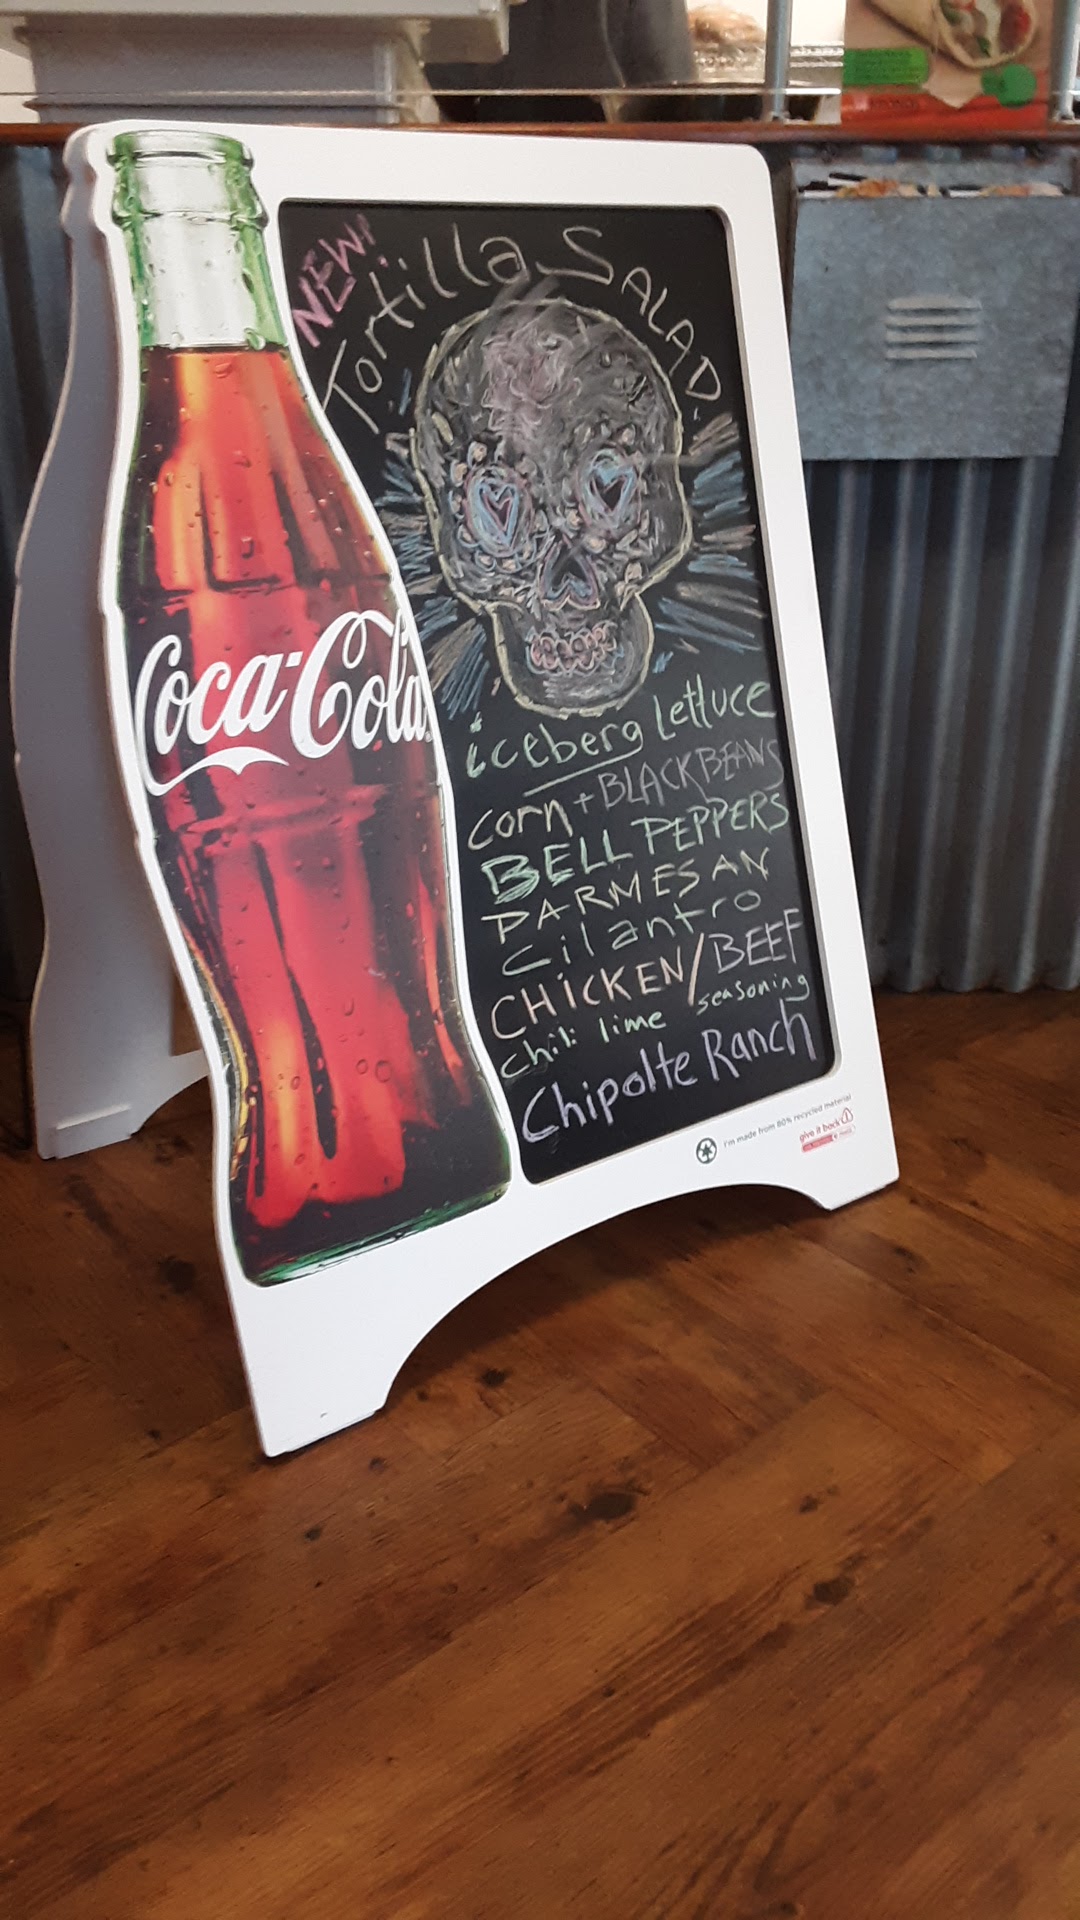 NEW!
Tortilla SALAD
Coca-Cola
iceberg Lettuce
corn + BLACK BEANS
BELL PEPPERS
PARMESAN
Cilantro
CHICKEN/BEEF
chili lime seasoning
Chipolte Ranch
I'm made from 80% recycled material
give it back